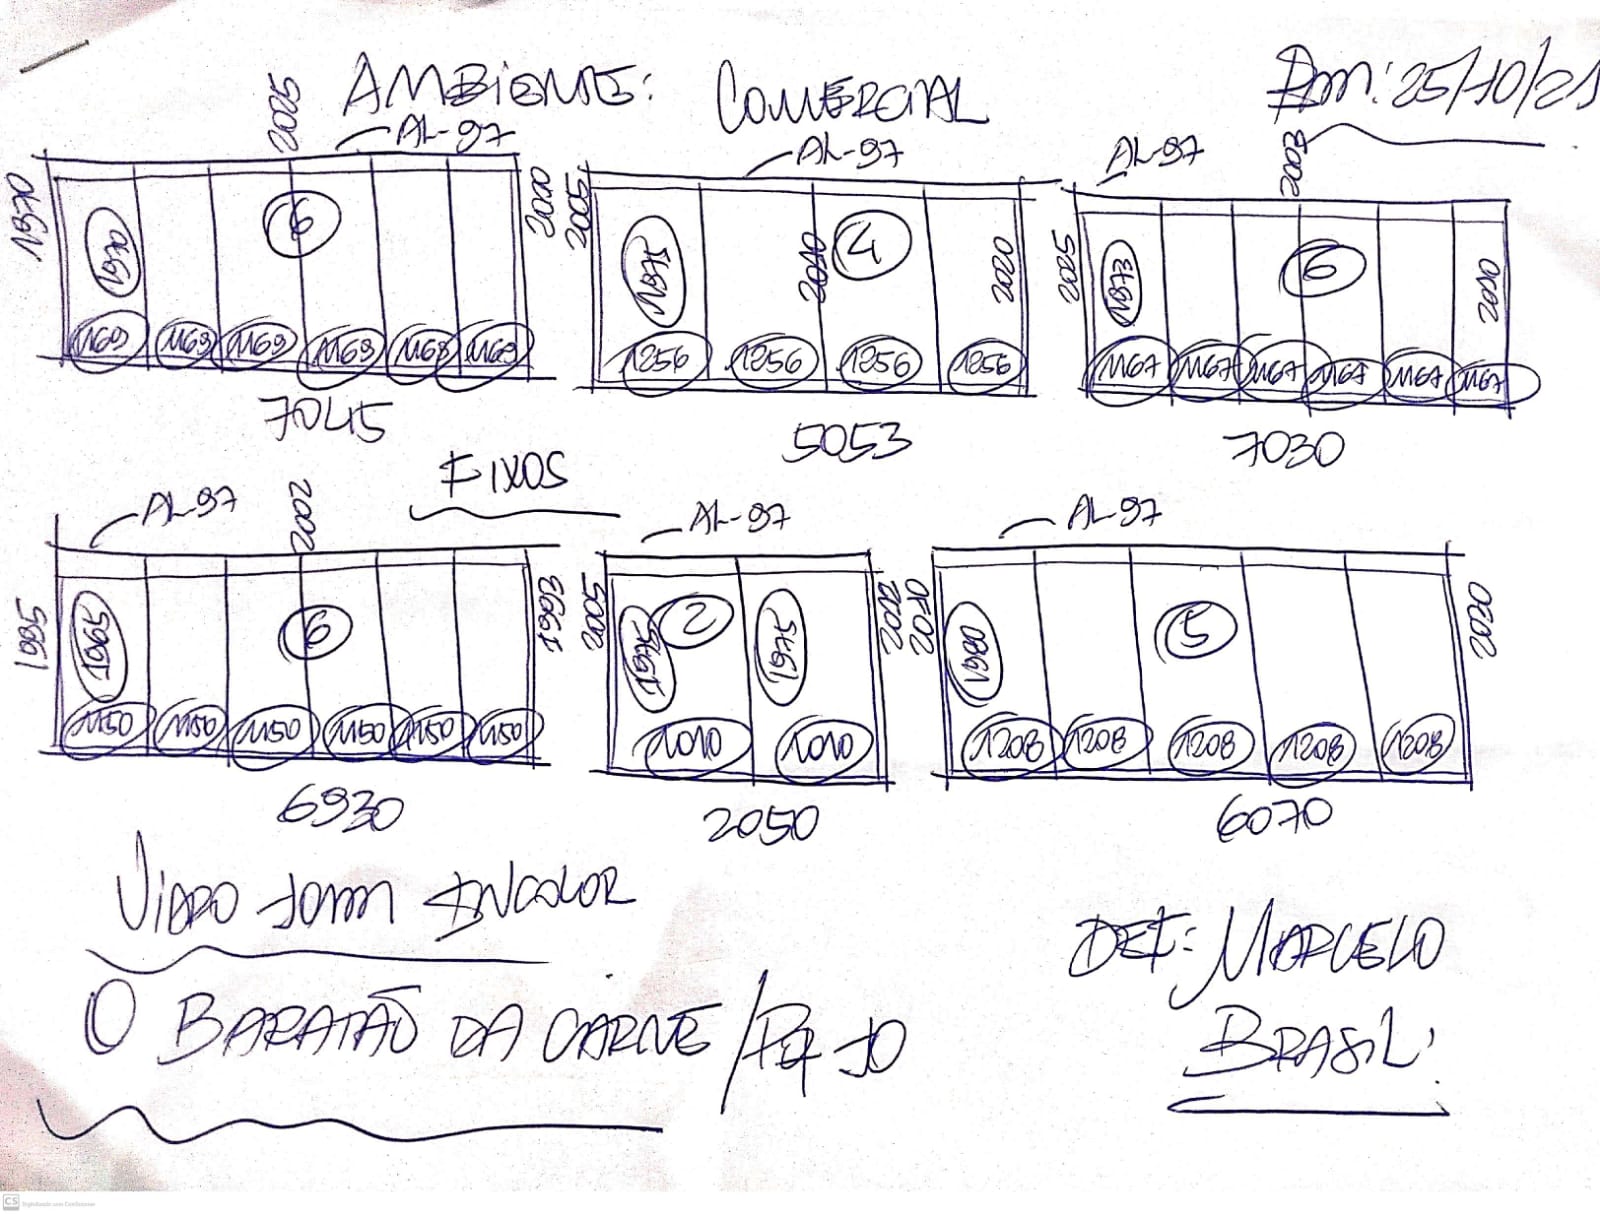 AMBIENTE: COMERCIAL
Em: 25/10/21
2025
AL-97
AL-97
AL-97
2002
1970
2000
2005
2025
1970
6
1975
2010
4
2020
1973
6
2010
1169 1169 1169 1169 1169 1169
1256 1256 1256 1256
1167 1167 1167 1167 1167 1167
7045
5053
7030
FIXOS
AL-97
2002
AL-97
AL-97
1995
1993
2005
2002
2020
1965
6
2
1975
1980
5
1150 1150 1150 1150 1150 1150
1010 1010
1208 1208 1208 1208 1208
6930
2050
6070
VIDRO 10mm INCOLOR
DEF: MARCELO
BRASIL.
O BARATÃO DA CARNE /
CS Digitalizado com CamScanner